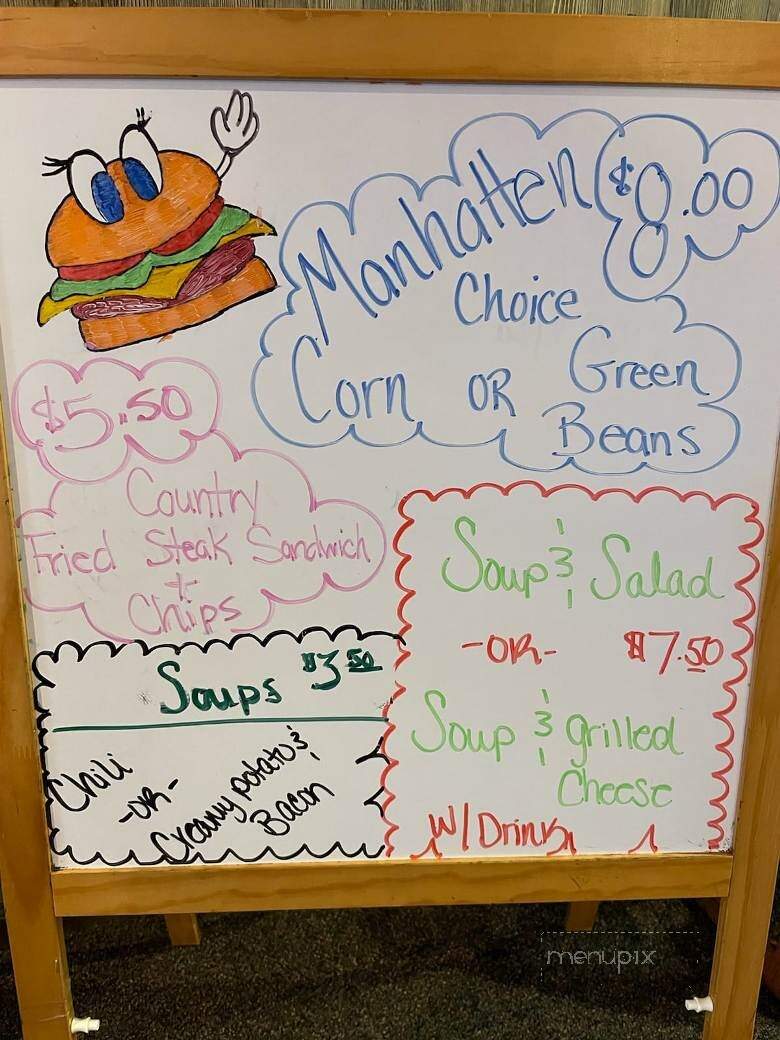 Manhatten $8.00
Choice
Corn OR Green
Beans
$5.50
Country
Fried Steak Sandwich
+
Chips
Soups $3.50
Chili
-OR-
Creamy potato &
Bacon
Soup & Salad
-OR- $7.50
Soup & grilled
Cheese
W/ Drink
menupix